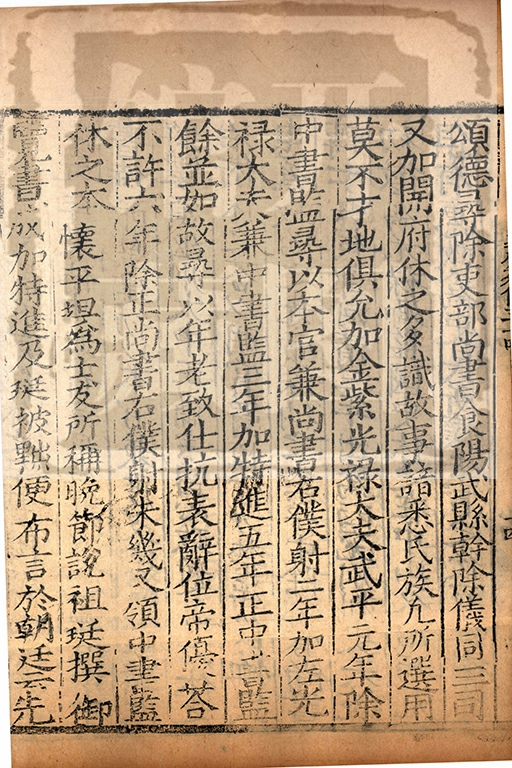 頌德尋除吏部尚書食陽武縣幹除儀同三司
又加開府休之多識故事諳悉氏族凡所選用
莫不才地俱允加金紫光祿大夫武平元年除
中書監尋以本官兼尚書右僕射二年加左光
祿大夫兼中書監三年加特進五年正中書監
餘並如故尋以年老致仕抗表辭位帝優荅
不許六年除正尚書右僕射未幾又領中書監
休之本懷平坦為士友所稱晚節說祖珽撰御
覽書成加特進及珽被黜便布言於朝廷云先